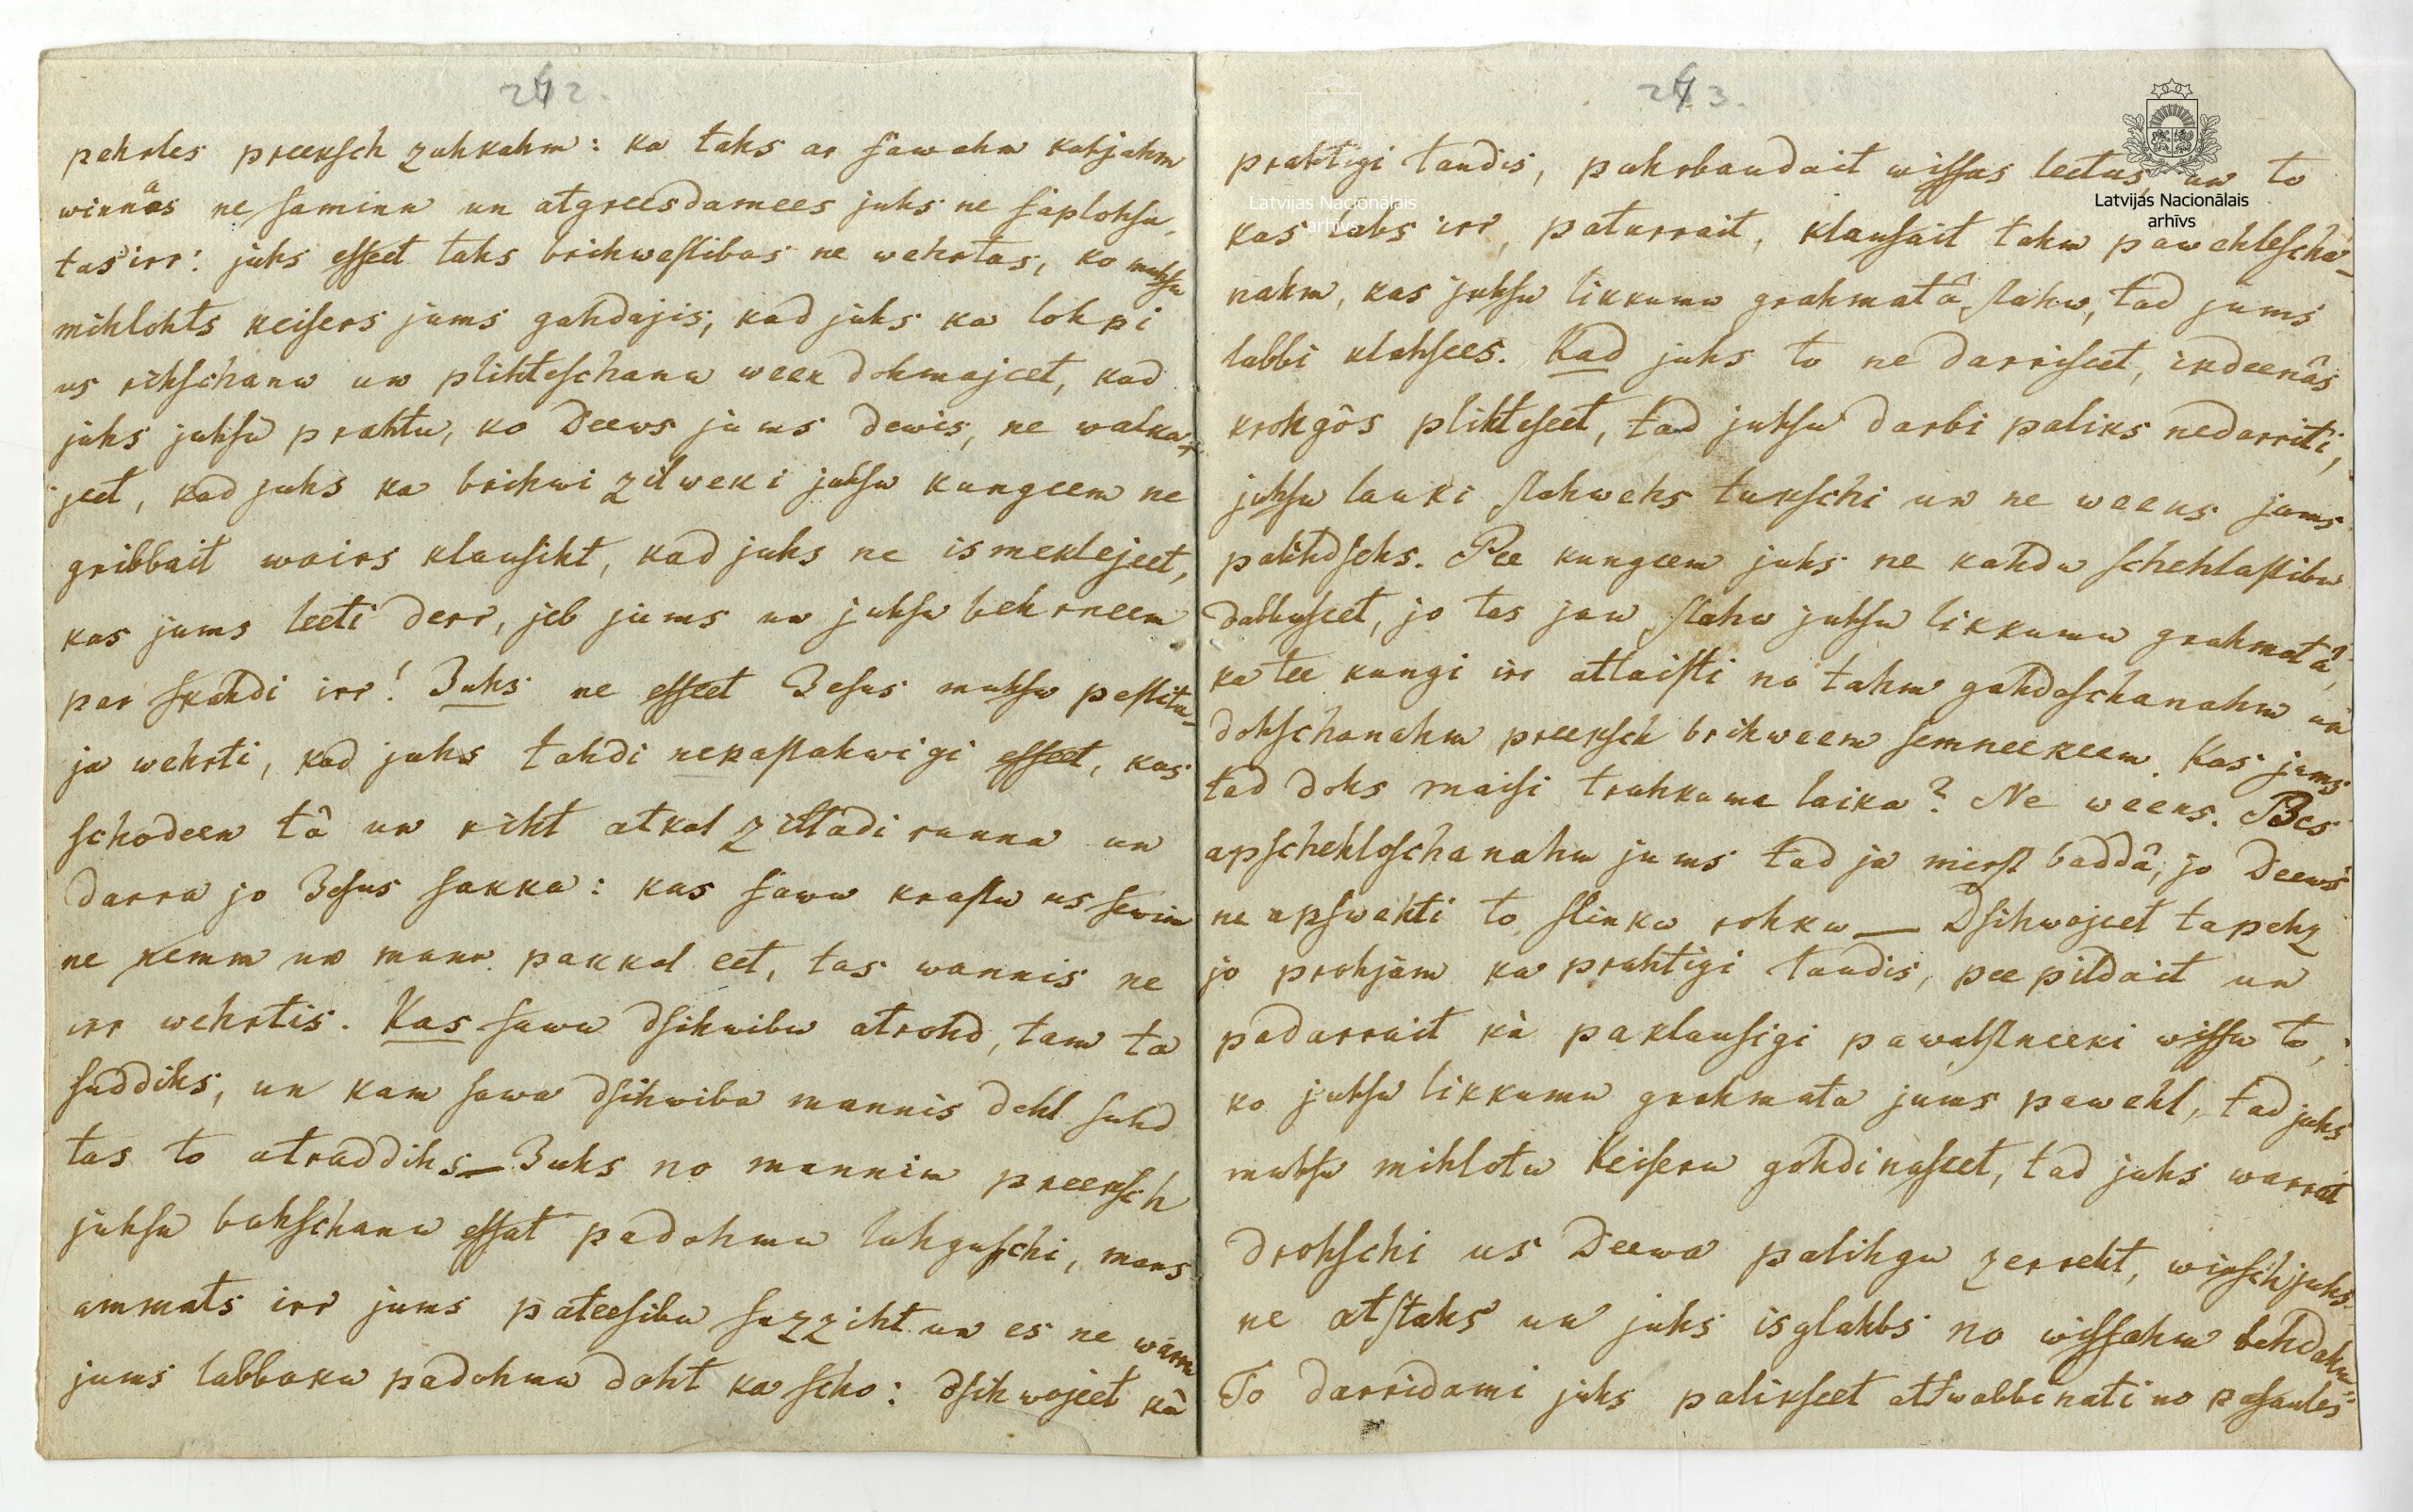 242.
pehrles preeksch zuhkahm: ka tahs ar sawahm kahjahm
winnäs ne samin̄n un atgreesdamees juhs ne saplohsa,
tas irr: juhs esseet tahs brihwestibas ne wehrtas, ko muhsu
mihlohts keisers jums gahdajis, kad juhs ka lohpi
us rihschanu un plihteschanu ween dohmajeet, kad
juhs juhsu prahtu, ko Deews jums dewis, ne walka-
jeet, kad juhs ka brihwi zilweki juhsu kungeem ne
gribbait wairs klausiht, kad juhs ne ismeklejeet,
kas jums leeti derr, jeb jums un juhsu behrneem
par skahdi irr! Juhs ne esseet Jesus muhsu pestita-
ja wehrti, kad juhs tahdi nepastahwigi esseet, kas
schodeen tâ un riht atkal zittadi runna un
darra jo Jesus sakka: kas sawu krustu us sewim
ne nemm un mann pakkal eet, tas mannis ne
irr wehrtis. Kas sawu dsihwibu atrohd, tam ta
suddihs, un kam sawa dsihwiba mannis dehl suhd
tas to atraddihs — Juhs no mannim preeksch
juhsu buhschanu essat padohmu luhguschi, mans
ammats irr jums pateesibu sazziht un es ne warru
jums labbaku padohmu doht ka scho: dsihwojeet kà
243.
prahtigi laudis, pahrbaudait wissas leetas, un to
kas labs irr, paturrait, klausait tahm pawehlescha-
nahm, kas juhsu likkumu grahmatâ stahw, tad jums
labbi klahsees. Kad juhs to ne darriseet, ikdeenâs
krohgôs plihteseet, tad juhsu darbi paliks nedarriti,
juhsu lauki stahwehs tukschi un ne weens jums
palihdsehs. Pee kungeem juhs ne kahdu schehlastibu
dabbuseet, jo tas jau stahw juhsu likkumu grahmatâ,
ka tee kungi irr atlaisti no tahm gahdaschanahm un
dohschanahm preeksch brihweem semneekeem. Kas jums
tad dohs maisi truhkuma laika? Ne weens. Bes
apschehloschanahm jums tad ja mirst baddâ, jo Deews
ne apswehti to slinku rohku — Dsihwojeet tapehz
jo prohjam ka prahtigi laudis, peepildait un
padarrait kà paklausigi pawalstneeki wissu to,
ko juhsu likkumu grahmata jums pawehl, tad juhs
muhsu mihlotu Keiseru gohdinaseet, tad juhs warrat
drohschi us Deewa palihgu zerreht, winsch juhs
ne atstahs un juhs isglahbs no wissahm behdahm.
To darridami juhs palikseet atswabbinati no pasaules
Latvijas Nacionālais
arhīvs
Latvijas Nacionālais
arhīvs